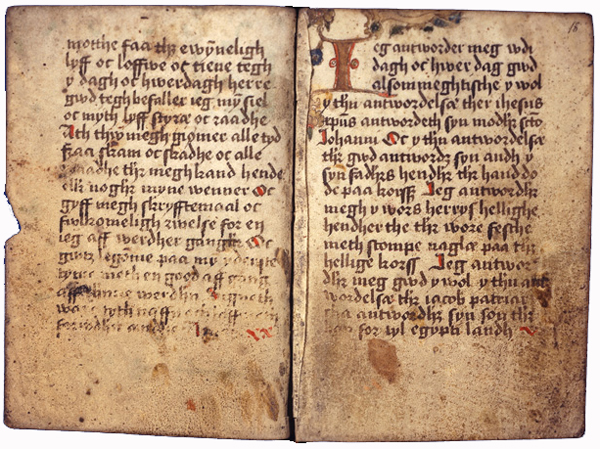 motthe faa thꝫ ewÿneligh
lyff oc loffwe oc tiene tegh
y dagh oc hwerdagh herre
gwd tegh befaller ieg my siel
oc myth lyff styræ oc raadhe
Ath thw megh giømer alle tyd
fraa skam oc skadhe oc alle
raadhe thꝫ megh kand hende
ellꝛ noghꝛ myne wenner Oc
gyff megh skryfftemaal oc
fwlkomeligh rwelse for en
ieg aff werdher
legome paa my
meth en good aff gang
aff werdhn
16
Ieg antworder meg wdi
dagh oc hwer dag gwd
alsommeghtische y wol
y thn antwordelsæ ther ihesus
xpūs antwordeth syn modhꝛ scto
Iohanni Oc y thn antwordelsæ
thꝫ gwd antwordꝛ syn andh y
syn fadhꝛs hendhꝛ thꝫ handdo
de paa korsꝫ Ieg antwordhꝛ
megh y wors herrys hellighe
hendher the thꝫ wore feste
meth stompe naglæ paa thꝫ
hellige korss Ieg antwor
dhꝛ meg gwd y wol y thn ant
wordelsæ thꝫ iacob patriar
cha antwordhꝛ syn søn thꝫ
han for i yl egypti landh